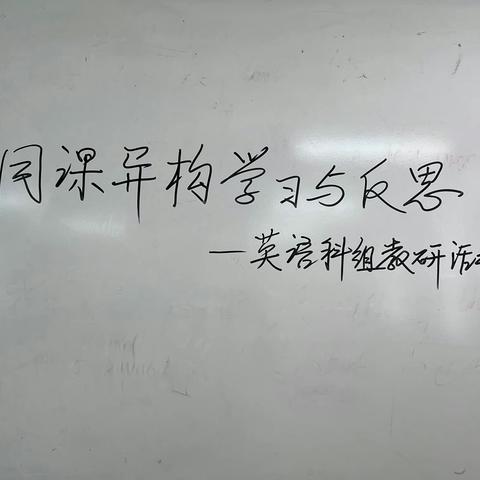 同课异构学习与反思
—英语科组教研活